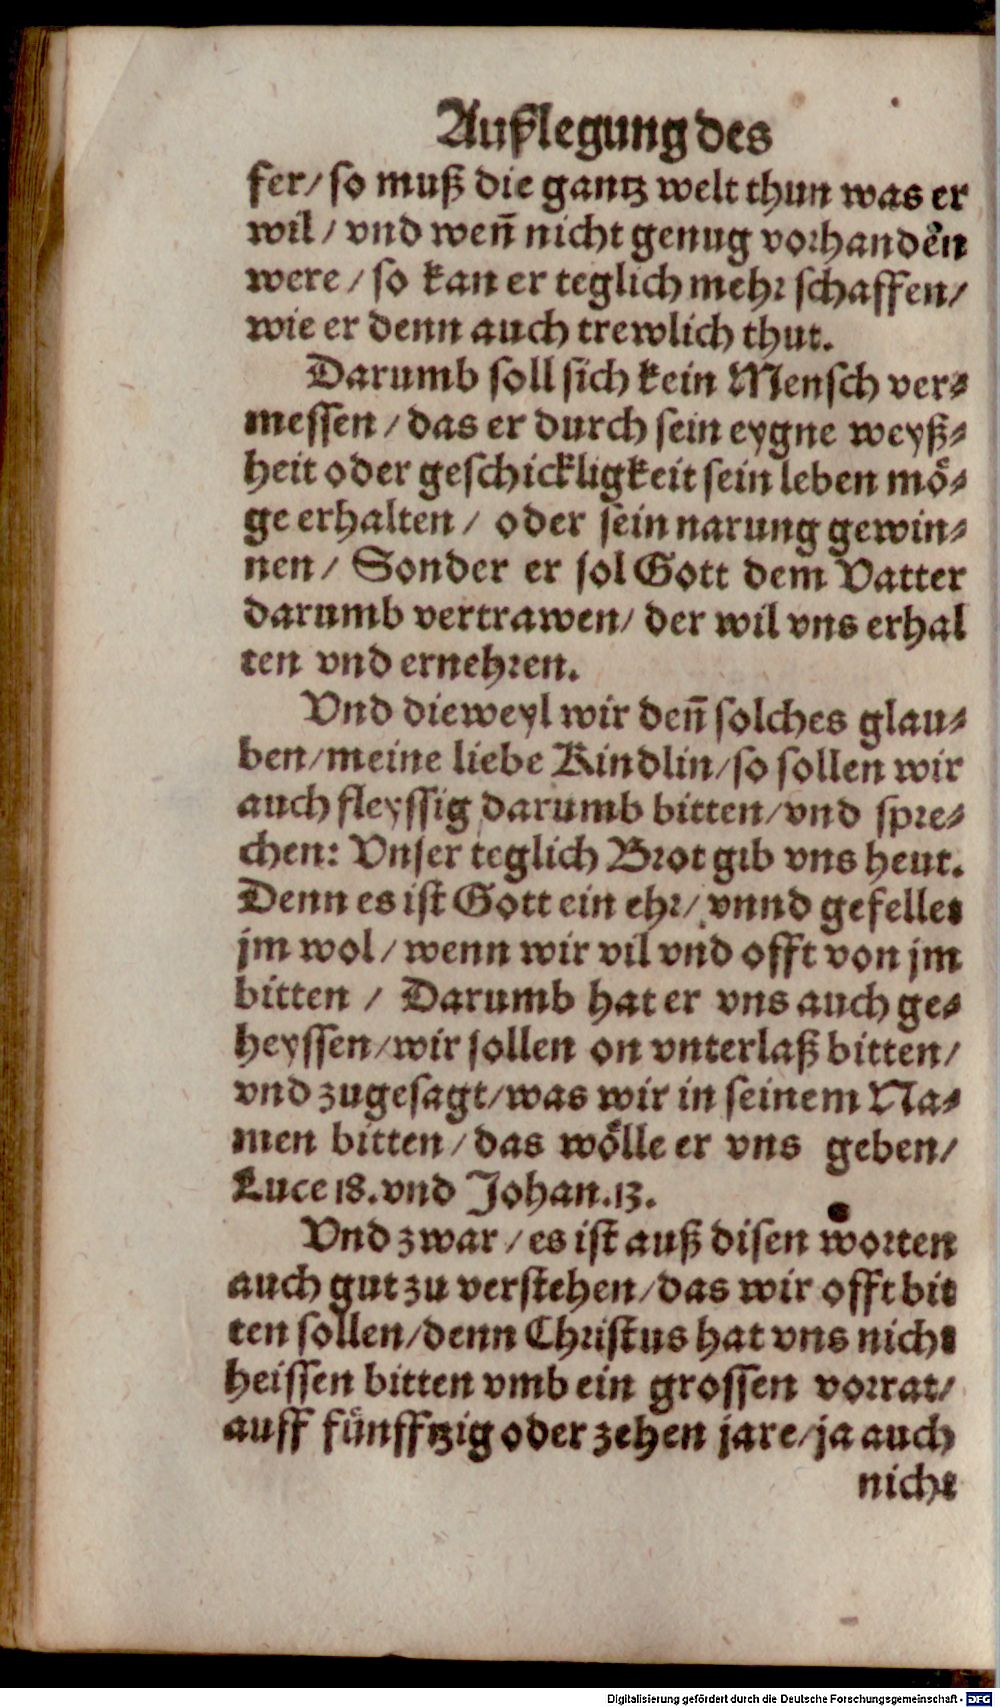 Außlegung des
fer/ so muß die gantz welt thun was er
wil/ vnd weñ nicht genug vorhanden
were/ so kan er teglich mehr schaffen/
wie er denn auch trewlich thut.
Darumb soll sich kein Mensch ver⸗
messen/ das er durch sein eygne weyß⸗
heit oder geschickligkeit sein leben mö⸗
ge erhalten/ oder sein narung gewin⸗
nen/ Sonder er sol Gott dem Vatter
darumb vertrawen/ der wil vns erhal
ten vnd ernehren.
Vnd dieweyl wir deñ solches glau⸗
ben/ meine liebe Kindlin/ so sollen wir
auch fleyssig darumb bitten/ vnd spre⸗
chen: Vnser teglich Brot gib vns heut.
Denn es ist Gott ein ehr/ vnnd gefellet
jm wol/ wenn wir vil vnd offt von jm
bitten/ Darumb hat er vns auch ge⸗
heyssen/ wir sollen on vnterlaß bitten/
vnd zugesagt/ was wir in seinem Na⸗
men bitten/ das wölle er vns geben/
Luce 18. vnd Johan. 13.
Vnd zwar/ es ist auß disen worten
auch gut zu verstehen/ das wir offt bit
ten sollen/ denn Christus hat vns nicht
heissen bitten vmb ein grossen vorrat/
auff fünfftzig oder zehen jare/ ja auch
nicht
Digitalisierung gefördert durch die Deutsche Forschungsgemeinschaft - DFG